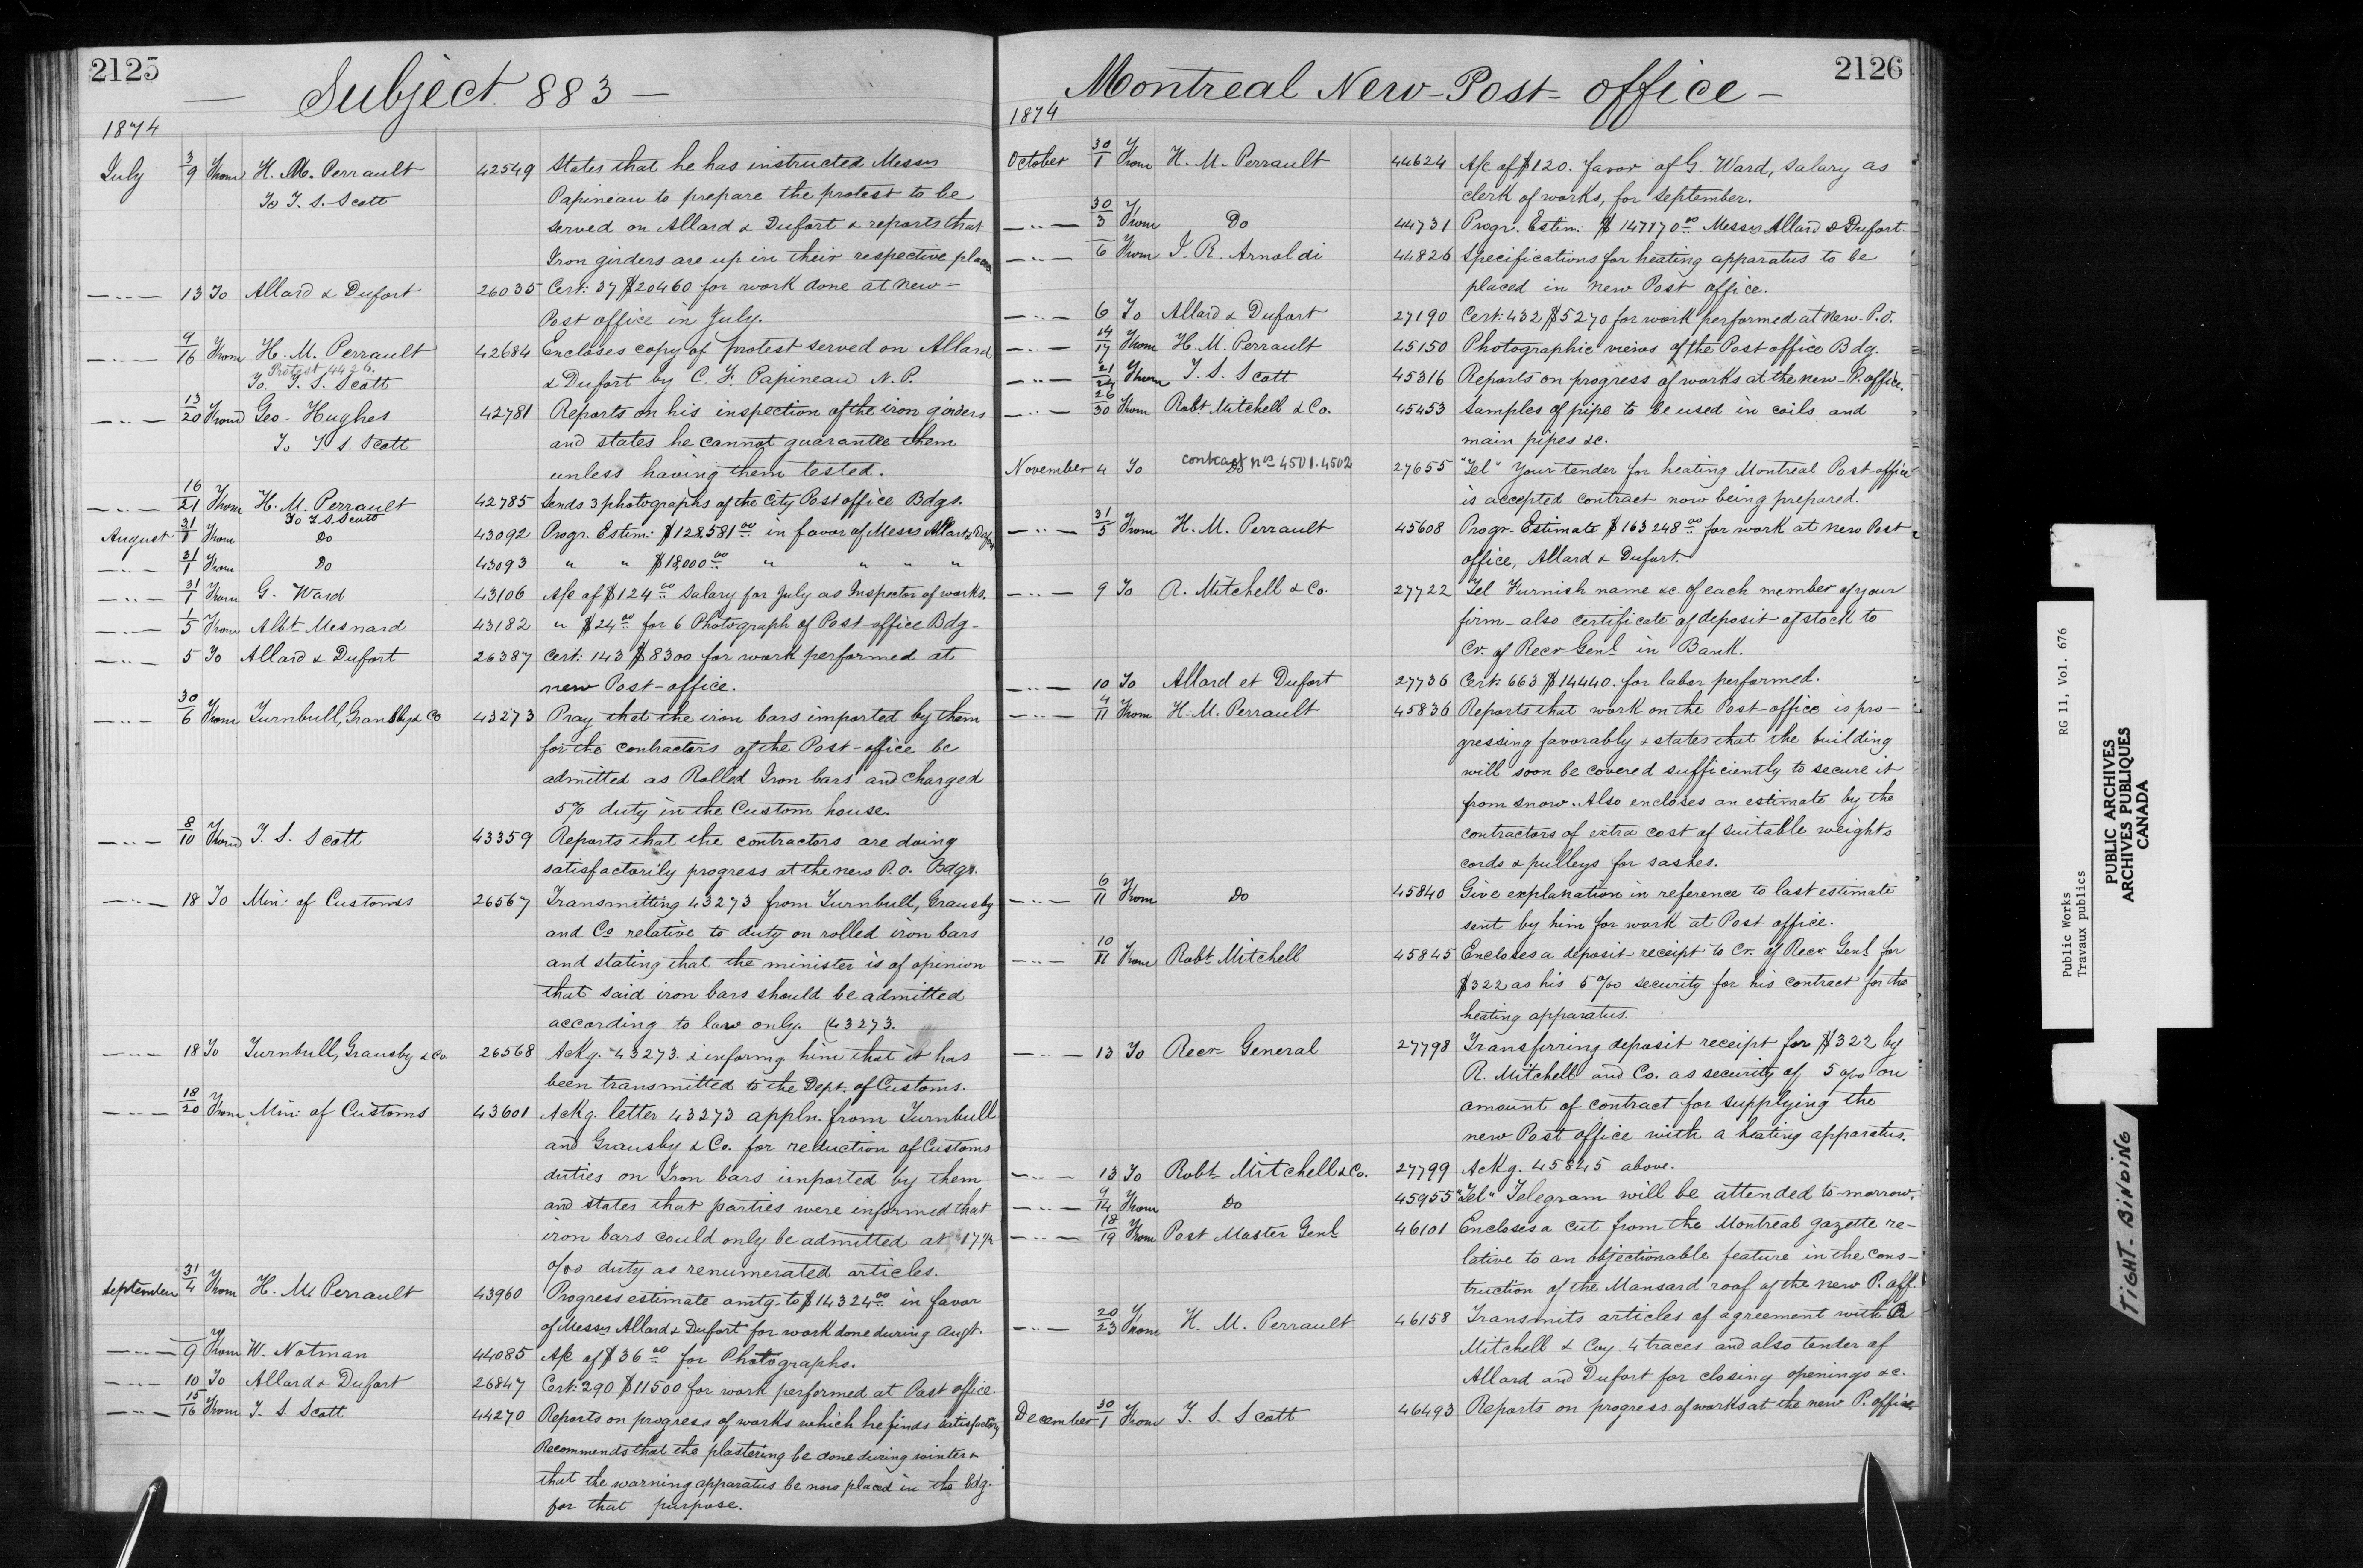 2125
Subject 883 -
1874
July 3/9 From H. M. Perrault 42549 States that he has instructed Messrs
To T. S. Scott Papineau to prepare the protest to be
served on Allard & Dufort & reports that
Iron girders are up in their respective places
—„— 13 To Allard & Dufort 26035 Cert: 37 $20460 for work done at new-
Post office in July.
—„— 9/16 From H. M. Perrault 42684 Encloses copy of protest served on Allard
Protest 4426.
To. T. S. Scott & Dufort by C. F. Papineau N. P.
—„— 13/20 From Geo- Hughes 42781 Reports on his inspection of the iron girders
To T. S. Scott and states he cannot guarantee them
unless having them tested.
—„— 16/21 From H. M. Perrault 42785 Sends 3 photographs of the City Post office Bdgs.
To T. S. Scott
August 31/1 From Do 43092 Progr. Estim: $128,581 00 in favor of Messrs Allard & Dufort
—„— 31/1 From Do 43093 " " $18,000 00 " " " "
—„— 31/1 From G. Ward 43106 A/c of $124 00 Salary for July as Inspector of works.
—„— 1/5 From Albt Mesnard 43182 " $24 00 for 6 Photograph of Post office Bdg-
—„— 5 To Allard & Dufort 26387 Cert: 143 $8300 for work performed at
new Post-office.
—„— 30/6 From Turnbull, Gransby & Co 43273 Pray that the iron bars imported by them
for the contractors of the Post-office be
admitted as Rolled Iron bars and charged
5% duty in the Custom house.
—„— 8/10 From T. S. Scott 43359 Reports that the contractors are doing
satisfactorily progress at the new P. O. Bdgs.
—„— 18 To Min: of Customs 26567 Transmitting 43273 from Turnbull, Gransby
and Co relative to duty on rolled iron bars
and stating that the minister is of opinion
that said iron bars should be admitted
according to law only. (43273.
—„— 18 To Turnbull, Gransby & Co. 26568 Ackg. 43273. & informg him that it has
been transmitted to the Dept. of Customs.
—„— 18/20 From Min: of Customs 43601 Ackg. letter 43273 appln. from Turnbull
and Gransby & Co. for reduction of Customs
duties on Iron bars imported by them
and states that parties were informed that
iron bars could only be admitted at 17½
o/oo duty as renumerated articles.
September 31/4 From H. M. Perrault 43960 Progress estimate amtg. to $14324 00 in favor
of Messrs Allard & Dufort for work done during Augt.
—„— 9 From W. Notman 44085 A/c of $36 00 for Photographs.
—„— 10 To Allard & Dufort 26847 Cert: 290 $11500 for work performed at Post office.
—„— 15/16 From T. S. Scott 44270 Reports on progress of works which he finds satisfactory
Recommends that the plastering be done during winter &
that the warning apparatus be now placed in the bdg.
for that purpose.
Montreal New-Post-office- 2126
1874
October 30/1 From H. M. Perrault 44624 A/c of $120. favor of G. Ward, salary as
clerk of works, for September.
—„— 30/3 From Do 44731 Progr. Estim: $147170 00 Messrs Allard & Dufort.
—„— 6 From J. R. Arnoldi 44826 Specifications for heating apparatus to be
placed in new Post office.
—„— 6 To Allard & Dufort 27190 Cert: 432 $5270 for work performed at new-P.O.
—„— 14/17 From H. M. Perrault 45150 Photographic views of the Post office Bdg.
—„— 21/24 From T. S. Scott 45316 Reports on progress of works at the new-P. office.
—„— 26/30 From Robt Mitchell & Co. 45453 Samples of pipe to be used in coils and
main pipes &c.
November 4 To Do contract nos 4501.4502 27655 "Tel" Your tender for heating Montreal Post-office
is accepted contract now being prepared.
—„— 31/5 From H. M. Perrault 45608 Progr. Estimate $163248 00 for work at new Post
office, Allard & Dufort.
—„— 9 To R. Mitchell & Co. 27722 Tel Furnish name &c. of each member of your
firm- also certificate of deposit of stock to
Cr. of Recr Genl in Bank.
—„— 10 To Allard et Dufort 27736 Cert: 663 $14440. for labor performed.
—„— 4/11 From H. M. Perrault 45836 Reports that work on the Post-office is pro-
gressing favorably & states that the building
will soon be covered sufficiently to secure it
from snow. Also encloses an estimate by the
contractors of extra cost of suitable weights
cords & pulleys for sashes.
—„— 6/11 From Do 45840 Give explanation in reference to last estimate
sent by him for work at Post office.
—„— 10/11 From Robt Mitchell 45845 Encloses a deposit receipt to Cr. of Recr. Genl for
$322 as his 5 o/oo security for his contract for the
heating apparatus.
—„— 13 To Recr- General 27798 Transferring deposit receipt for $322 by
R. Mitchell and Co. as security of 5 o/oo on
amount of contract for supplying the
new Post office with a heating apparatus.
—„— 13 To Robt Mitchell & Co. 27799 Ackg. 45845 above.
—„— 9/14 From Do 45955 "Tel" Telegram will be attended to-morrow.
—„— 18/19 From Post Master Genl 46101 Encloses a cut from the Montreal gazette re-
lative to an objectionable feature in the cons-
truction of the Mansard roof of the new P. off.
—„— 20/23 From H. M. Perrault 46158 Transmits articles of agreement with R
Mitchell & Coy. 4 traces and also tender of
Allard and Dufort for closing openings &c.
December 30/1 From T. S. Scott 46493 Reports on progress of works at the new P. office.
Public Works RG 11, Vol. 676
Travaux publics
PUBLIC ARCHIVES
ARCHIVES PUBLIQUES
CANADA
TIGHT BINDING